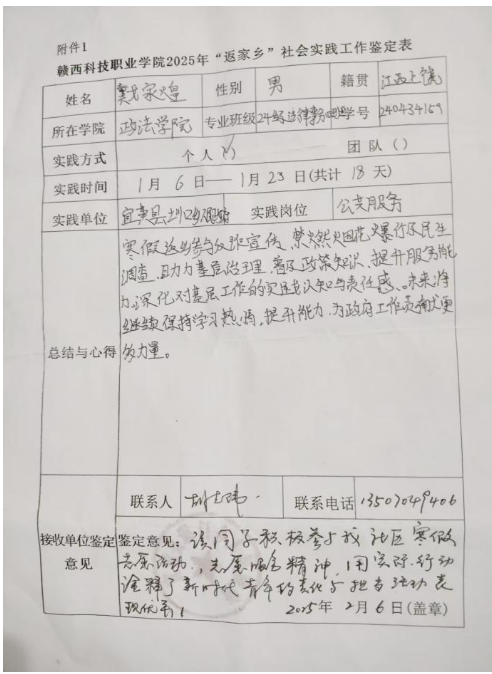 附件1
赣西科技职业学院2025年“返家乡”社会实践工作鉴定表
姓名 戴宋煌 性别 男 籍贯 江西上饶
所在学院 政法学院 专业班级 24级法律事务 学号 240434159
实践方式 个人(√) 团队()
实践时间 1月6日——1月23日(共计18天)
实践单位 实践岗位 公共服务
寒假返乡参与反诈宣传,禁燃烟花爆竹及民生
调查,助力基层治理,普及政策知识,提升服务能
力,深化对基层工作的实践认知与责任感。未来将
继续保持学习热情,提升能力,为政府工作贡献更
多力量。
总结与心得
联系人 联系电话 13507049406
接收单位鉴定意见
鉴定意见:该同学积极参与我社区寒假
志愿活动,志愿服务精神,用实际行动
诠释了新时代青年的责任与担当活动表
现优秀!
2025年2月6日(盖章)